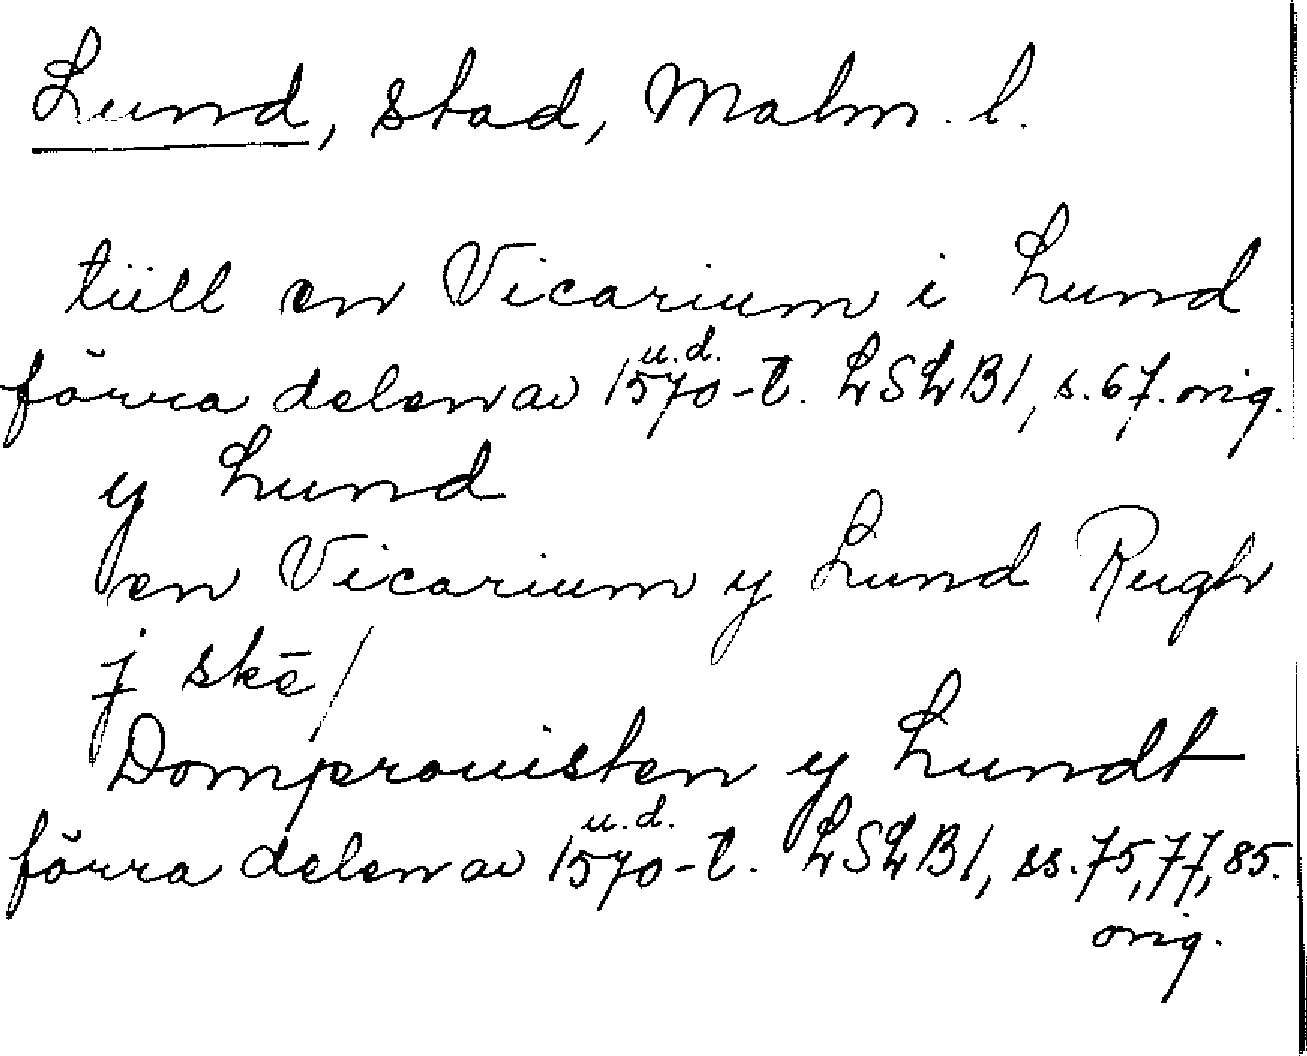 Lund, stad, Malm. l.
tiill en Vicarium i Lund
förra delen av 1570-t. u.d. LSLB1, s. 67. orig.
y Lund
en Vicarium y Lund Rugh
j skē/
Domprouisten y Lundt
förra delen av 1570-t. u.d. LSLB1, ss. 75, 77, 85.
orig.